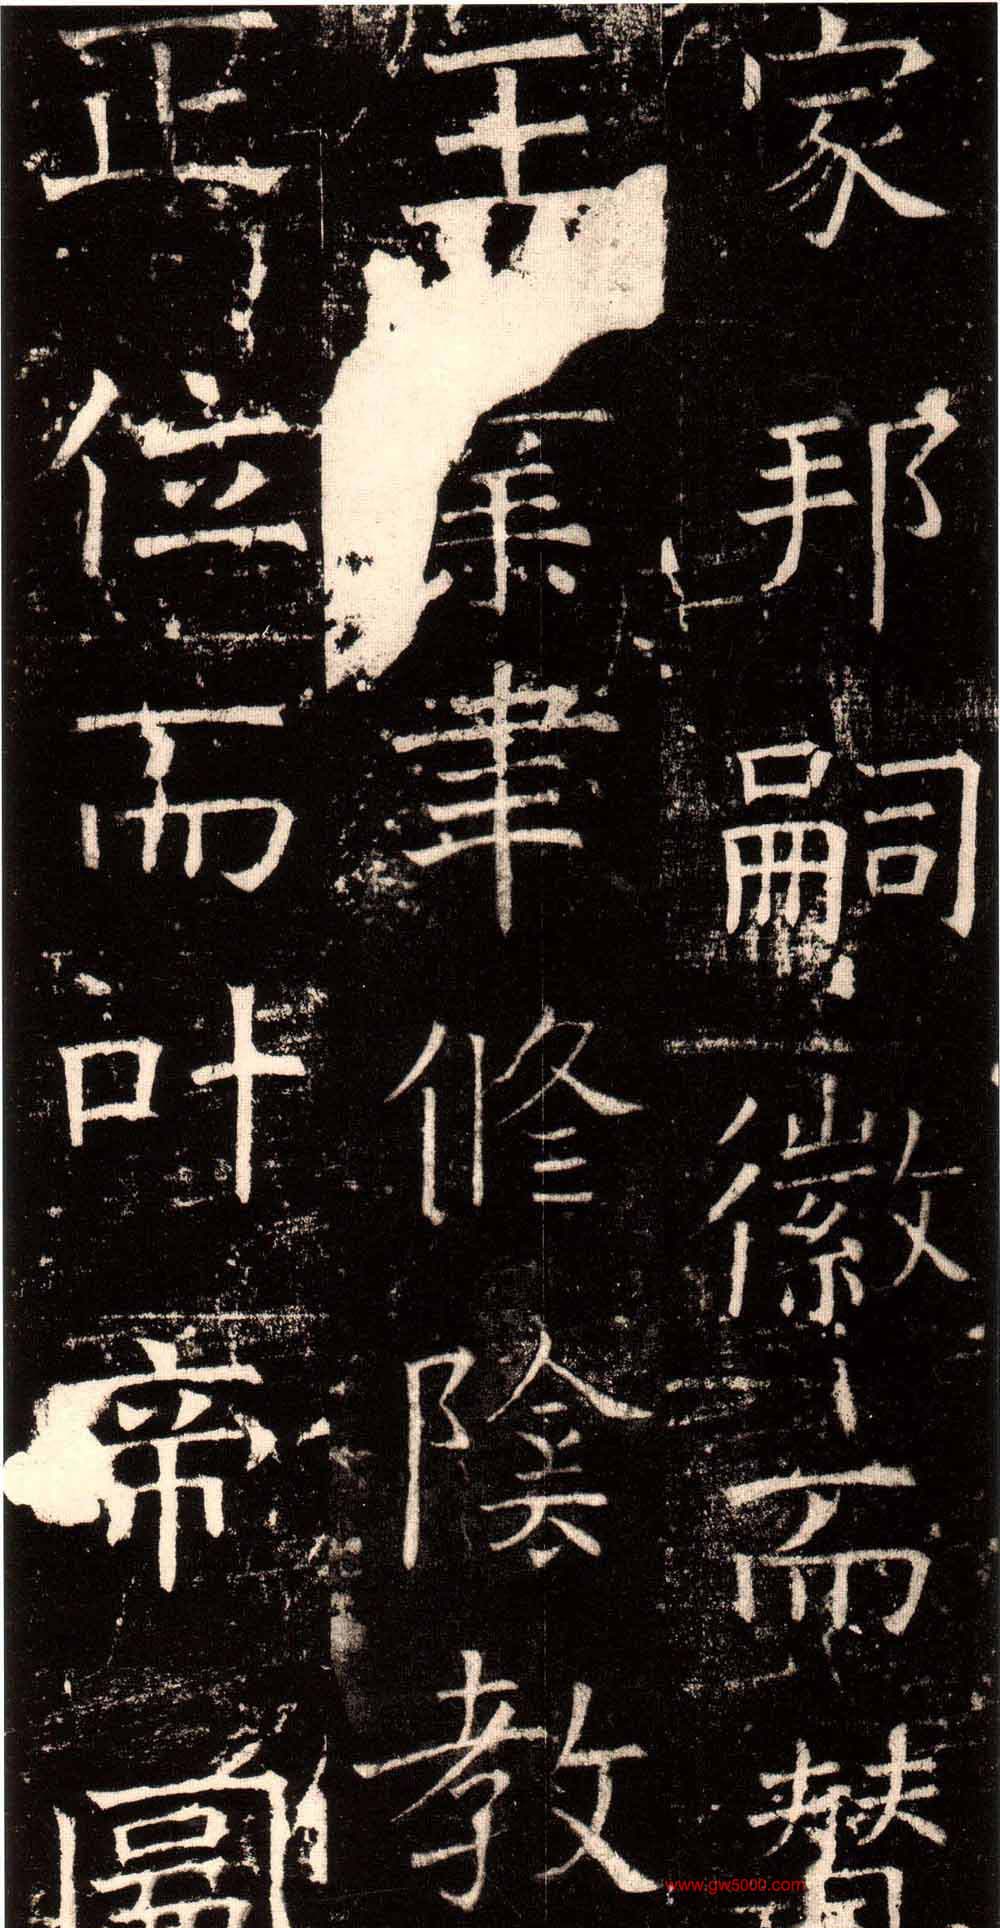 家邦嗣徽而贊
王業聿修陰教
正位而叶帝圖
www.gw5000.com